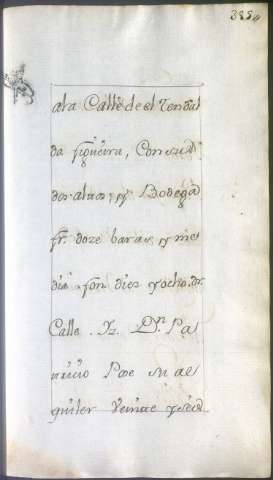 385
ala Calle de el Rendal
da figueira, Con sus
dos altos, y Bodega
fr. doze baras, y me
dia, fon. diez y ocho, dr.
Calle. Yz. Dn. Pa
tricio Pae su al
quiler Veinte y seis